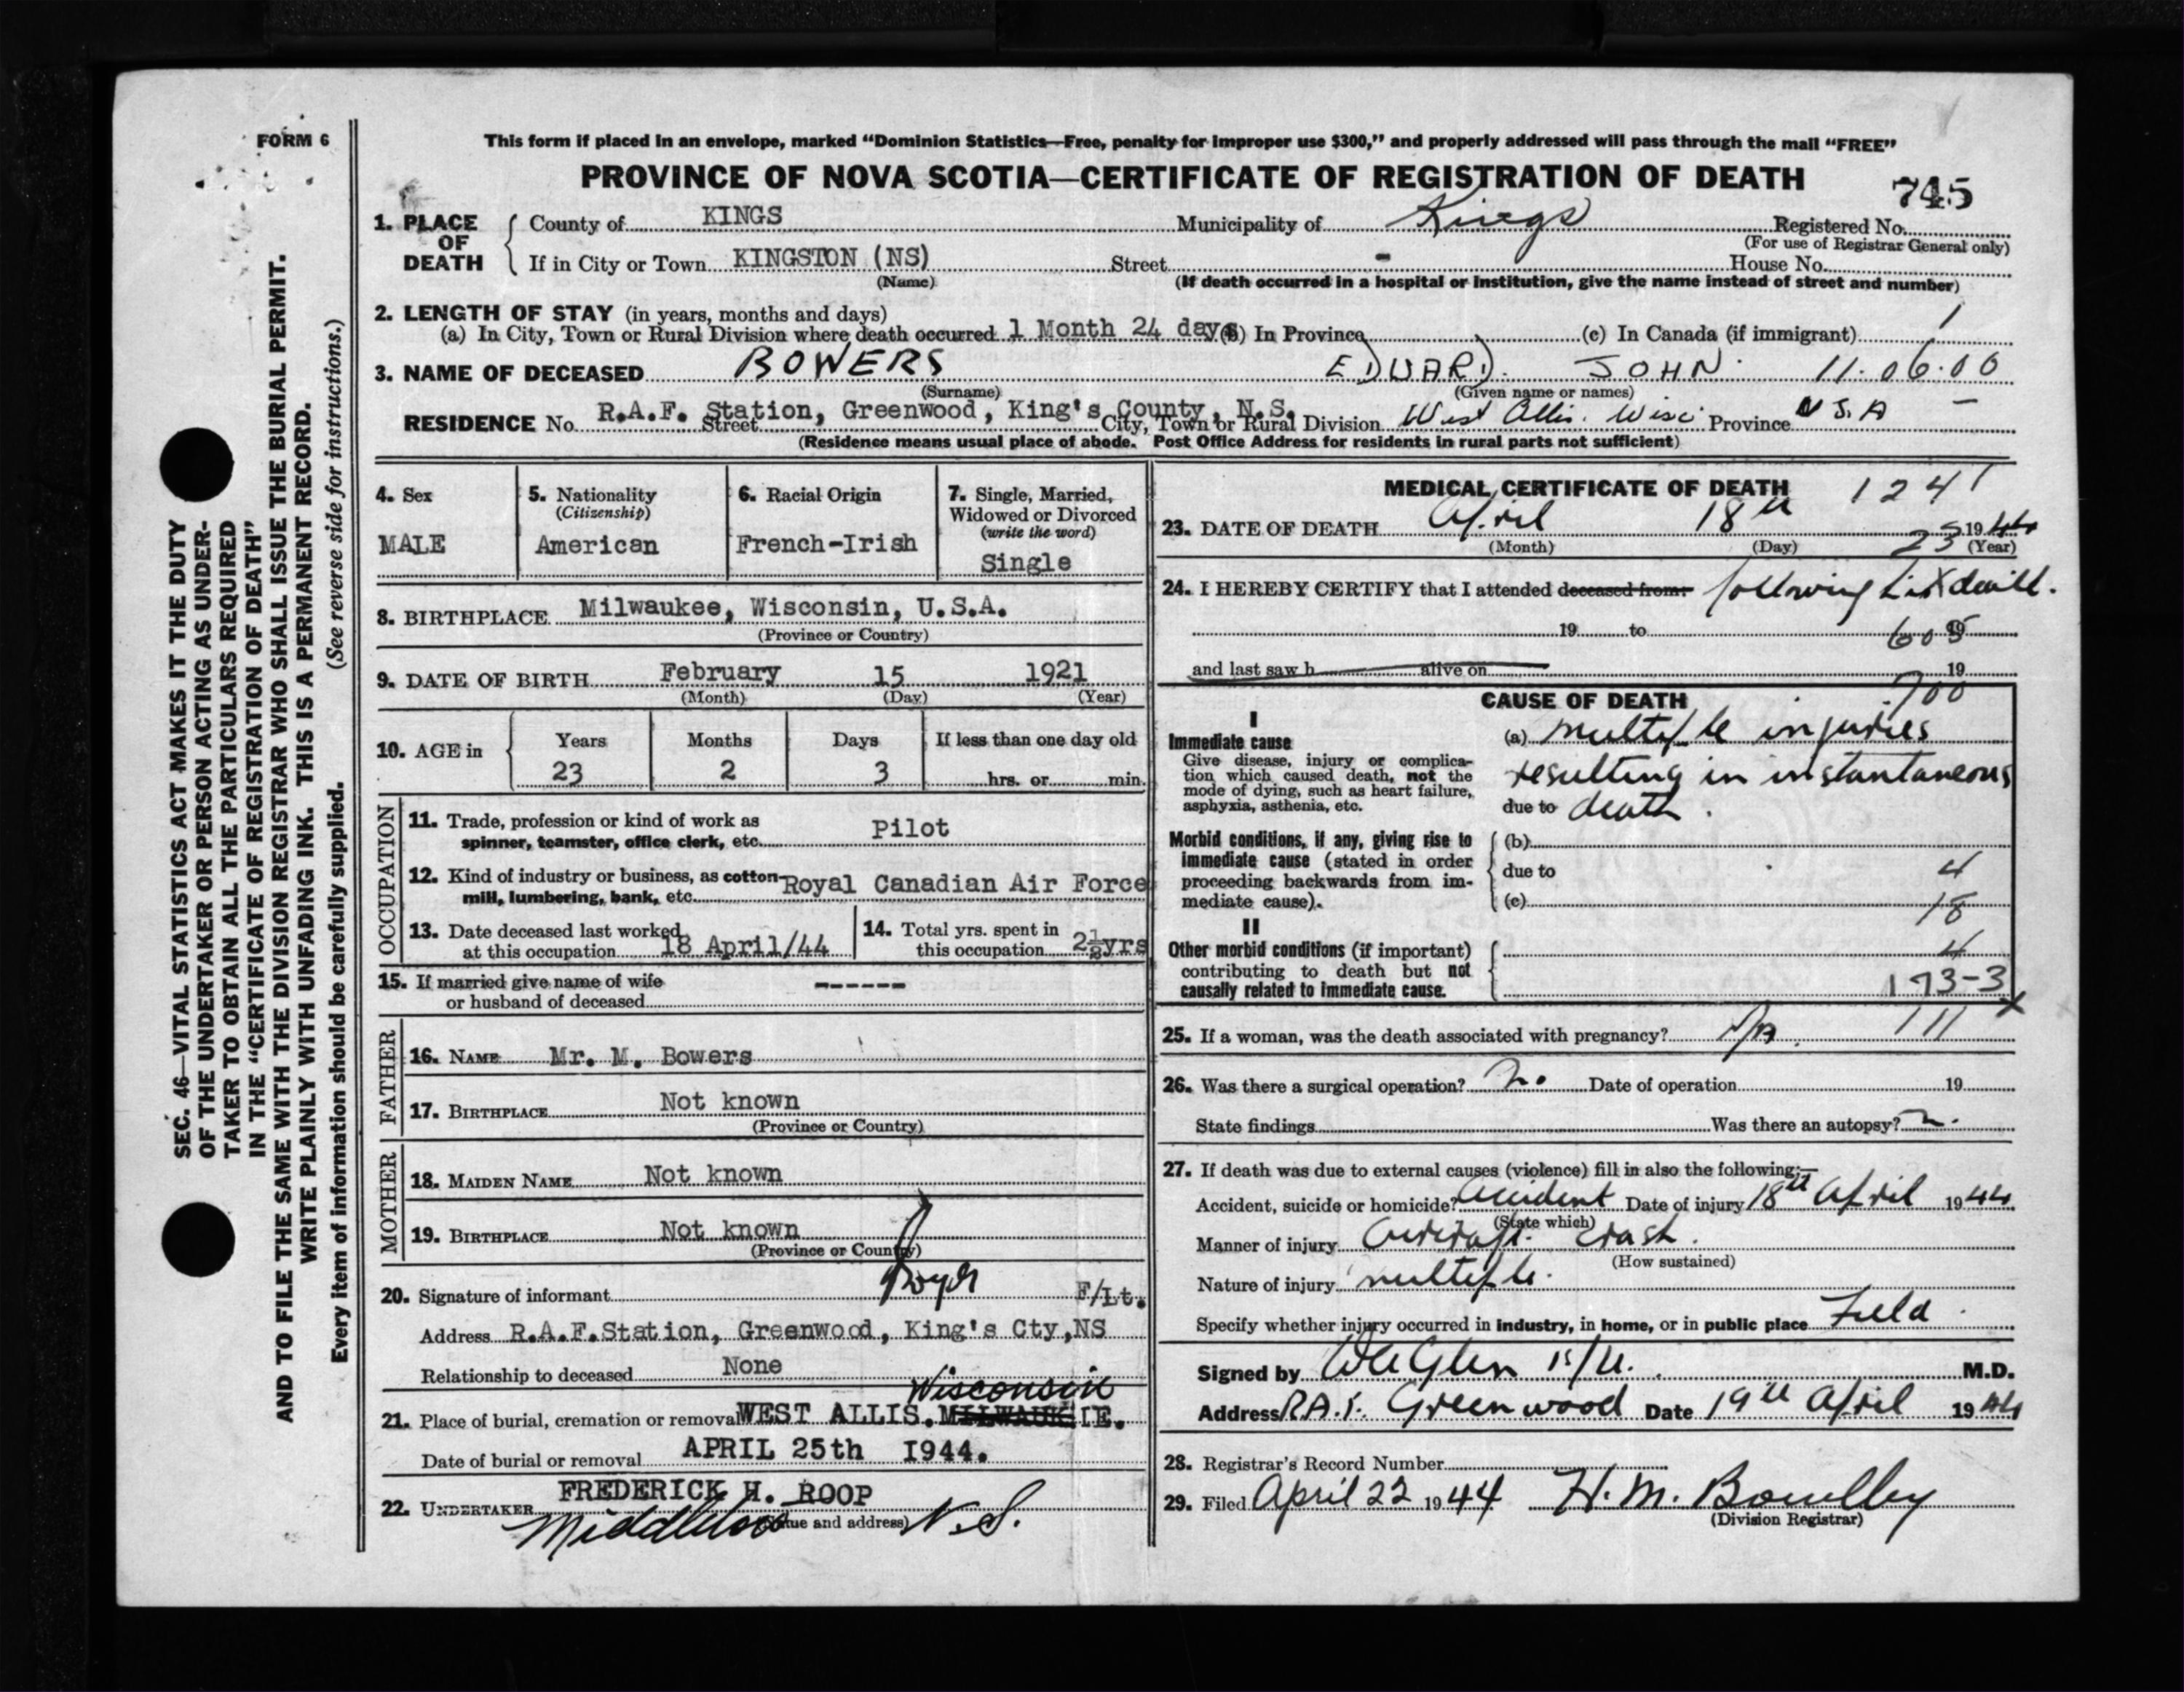 FORM 6
This form if placed in an envelope, marked "Dominion Statistics—Free, penalty for improper use $300," and properly addressed will pass through the mail "FREE"
PROVINCE OF NOVA SCOTIA—CERTIFICATE OF REGISTRATION OF DEATH
745
1. PLACE OF DEATH
County of KINGS Municipality of Kings Registered No.
(For use of Registrar General only)
If in City or Town KINGSTON (NS) Street - House No.
(Name) (If death occurred in a hospital or institution, give the name instead of street and number)
2. LENGTH OF STAY (in years, months and days)
(a) In City, Town or Rural Division where death occurred 1 Month 24 days (b) In Province (c) In Canada (if immigrant) 1
3. NAME OF DECEASED BOWERS EDWARD. JOHN. 11.06.00
(Surname) (Given name or names)
RESIDENCE No. R.A.F. Station, Greenwood, King's County, N.S. Street City, Town or Rural Division West Allis. Wisc. Province U.S.A -
(Residence means usual place of abode. Post Office Address for residents in rural parts not sufficient)
SEC. 46—VITAL STATISTICS ACT MAKES IT THE DUTY
OF THE UNDERTAKER OR PERSON ACTING AS UNDER-
TAKER TO OBTAIN ALL THE PARTICULARS REQUIRED
IN THE "CERTIFICATE OF REGISTRATION OF DEATH"
AND TO FILE THE SAME WITH THE DIVISION REGISTRAR WHO SHALL ISSUE THE BURIAL PERMIT.
WRITE PLAINLY WITH UNFADING INK. THIS IS A PERMANENT RECORD.
Every item of information should be carefully supplied. (See reverse side for instructions.)
4. Sex
MALE
5. Nationality
(Citizenship)
American
6. Racial Origin
French-Irish
7. Single, Married,
Widowed or Divorced
(write the word)
Single
8. BIRTHPLACE Milwaukee, Wisconsin, U.S.A.
(Province or Country)
9. DATE OF BIRTH February 15 1921
(Month) (Day) (Year)
10. AGE in
Years Months Days If less than one day old
23 2 3 hrs. or min.
OCCUPATION
11. Trade, profession or kind of work as
spinner, teamster, office clerk, etc. Pilot
12. Kind of industry or business, as cotton-
mill, lumbering, bank, etc. Royal Canadian Air Force
13. Date deceased last worked
at this occupation 18 April/44
14. Total yrs. spent in
this occupation 2½yrs
15. If married give name of wife
or husband of deceased ------
FATHER
16. NAME Mr. M. Bowers
17. BIRTHPLACE Not known
(Province or Country)
MOTHER
18. MAIDEN NAME Not known
19. BIRTHPLACE Not known
(Province or Country)
20. Signature of informant F/Lt.
Address R.A.F.Station, Greenwood, King's Cty,NS
Relationship to deceased None
Wisconsin
21. Place of burial, cremation or removal WEST ALLIS. MILWAUKIE.
Date of burial or removal APRIL 25th 1944.
22. UNDERTAKER FREDERICK H. ROOP
(Name and address)
Middleton N.S.
MEDICAL CERTIFICATE OF DEATH 1241
23. DATE OF DEATH April 18th 1944
(Month) (Day) 25 (Year)
24. I HEREBY CERTIFY that I attended deceased from following his death.
19 to 19
605
and last saw h alive on 19
700
CAUSE OF DEATH
I
Immediate cause
Give disease, injury or complica-
tion which caused death, not the
mode of dying, such as heart failure,
asphyxia, asthenia, etc.
(a) multiple injuries
resulting in instantaneous
due to death.
Morbid conditions, if any, giving rise to
immediate cause (stated in order
proceeding backwards from im-
mediate cause).
(b)
due to 4
(c) 18
II
Other morbid conditions (if important)
contributing to death but not
causally related to immediate cause.
4
173-3
X
25. If a woman, was the death associated with pregnancy? 111
26. Was there a surgical operation? No Date of operation 19
State findings Was there an autopsy?
27. If death was due to external causes (violence) fill in also the following:—
Accident, suicide or homicide? accident Date of injury 18th April 1944
(State which)
Manner of injury Aircraft crash.
(How sustained)
Nature of injury multiple.
Specify whether injury occurred in industry, in home, or in public place Field
Signed by M.D.
Address R.A.F. Greenwood Date 19th April 1944
28. Registrar's Record Number
29. Filed April 22 1944 H. M.
(Division Registrar)